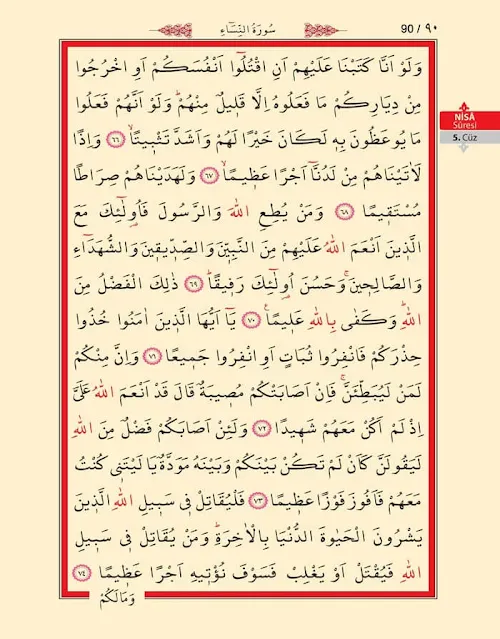 سُورَةُ النِّسَٓاءِ
90 / ٩٠
وَلَوْ اَنَّا كَتَبْنَا عَلَيْهِمْ اَنِ اقْتُلُٓوا اَنْفُسَكُمْ اَوِ اخْرُجُوا
مِنْ دِيَارِكُمْ مَا فَعَلُوهُ اِلَّا قَل۪يلٌ مِنْهُمْۜ وَلَوْ اَنَّهُمْ فَعَلُوا
مَا يُوعَظُونَ بِه۪ لَكَانَ خَيْرًا لَهُمْ وَاَشَدَّ تَثْب۪يتًاۙ ﴿٦٦﴾ وَاِذًا
لَاٰتَيْنَاهُمْ مِنْ لَدُنَّٓا اَجْرًا عَظ۪يمًاۙ ﴿٦٧﴾ وَلَهَدَيْنَاهُمْ صِرَاطًا
مُسْتَق۪يمًا ﴿٦٨﴾ وَمَنْ يُطِعِ اللّٰهَ وَالرَّسُولَ فَاُو۬لٰٓئِكَ مَعَ
الَّذ۪ينَ اَنْعَمَ اللّٰهُ عَلَيْهِمْ مِنَ النَّبِيّ۪نَ وَالصِّدّ۪يق۪ينَ وَالشُّهَدَٓاءِ
وَالصَّالِح۪ينَۚ وَحَسُنَ اُو۬لٰٓئِكَ رَف۪يقًاۜ ﴿٦٩﴾ ذٰلِكَ الْفَضْلُ مِنَ
اللّٰهِۜ وَكَفٰى بِاللّٰهِ عَل۪يمًا۟ ﴿٧٠﴾ يَٓا اَيُّهَا الَّذ۪ينَ اٰمَنُوا خُذُوا
حِذْرَكُمْ فَانْفِرُوا ثُبَاتٍ اَوِ انْفِرُوا جَم۪يعًا ﴿٧١﴾ وَاِنَّ مِنْكُمْ
لَمَنْ لَيُبَطِّئَنَّۚ فَاِنْ اَصَابَتْكُمْ مُص۪يبَةٌ قَالَ قَدْ اَنْعَمَ اللّٰهُ عَلَيَّ
اِذْ لَمْ اَكُنْ مَعَهُمْ شَه۪يدًا ﴿٧٢﴾ وَلَئِنْ اَصَابَكُمْ فَضْلٌ مِنَ اللّٰهِ
لَيَقُولَنَّ كَاَنْ لَمْ تَكُنْ بَيْنَكُمْ وَبَيْنَهُ مَوَدَّةٌ يَا لَيْتَن۪ي كُنْتُ
مَعَهُمْ فَاَفُوزَ فَوْزًا عَظ۪يمًا ﴿٧٣﴾ فَلْيُقَاتِلْ ف۪ي سَب۪يلِ اللّٰهِ الَّذ۪ينَ
يَشْرُونَ الْحَيٰوةَ الدُّنْيَا بِالْاٰخِرَةِۜ وَمَنْ يُقَاتِلْ ف۪ي سَب۪يلِ
اللّٰهِ فَيُقْتَلْ اَوْ يَغْلِبْ فَسَوْفَ نُؤْت۪يهِ اَجْرًا عَظ۪يمًا ﴿٧٤﴾
وَمَا لَكُمْ
NİSÂ
Sûresi
5. Cüz